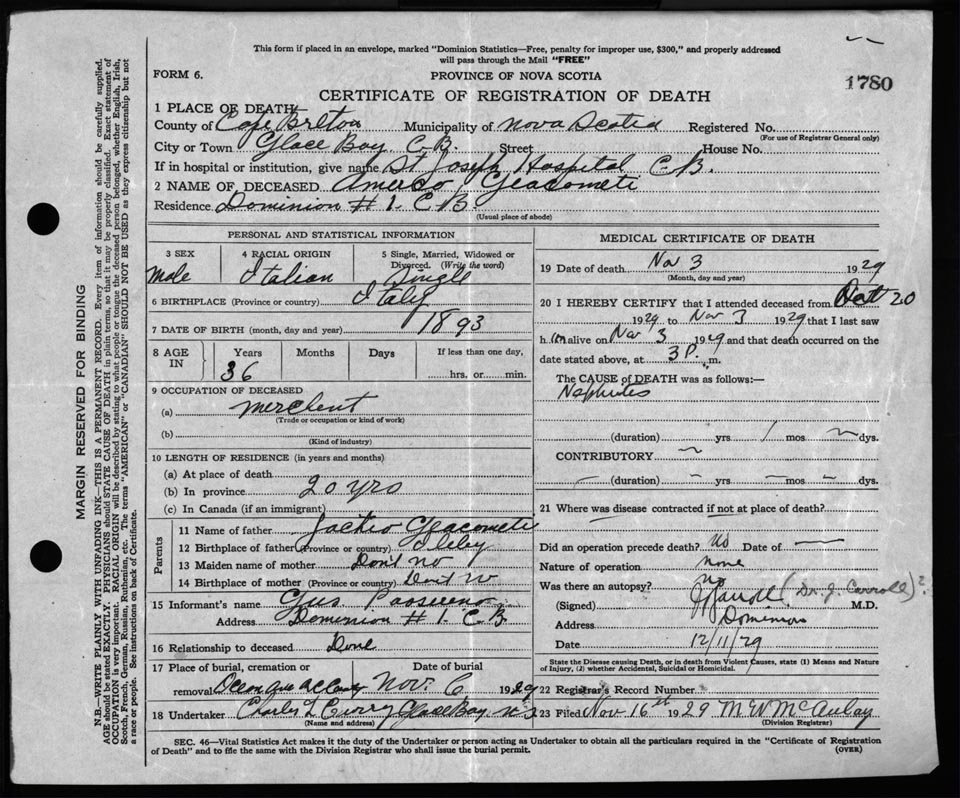 This form if placed in an envelope, marked "Dominion Statistics—Free, penalty for improper use, $300," and properly addressed
will pass through the Mail "FREE"
FORM 6.
PROVINCE OF NOVA SCOTIA
1780
CERTIFICATE OF REGISTRATION OF DEATH
1 PLACE OF DEATH—
County of Cape Breton Municipality of Nova Scotia Registered No.
(For use of Registrar General only)
City or Town Glace Bay C.B. Street House No.
If in hospital or institution, give name St Joseph Hospital C.B.
2 NAME OF DECEASED Geacometi
Residence Dominion # 1. C B
(Usual place of abode)
PERSONAL AND STATISTICAL INFORMATION
3 SEX
Male
4 RACIAL ORIGIN
Italian
5 Single, Married, Widowed or
Divorced. (Write the word)
Single
6 BIRTHPLACE (Province or country) Italy
7 DATE OF BIRTH (month, day and year) 1893
8 AGE
IN
Years
Months
Days
If less than one day,
36
hrs. or min.
9 OCCUPATION OF DECEASED
(a) Merchent
(Trade or occupation or kind of work)
(b)
(Kind of industry)
10 LENGTH OF RESIDENCE (in years and months)
(a) At place of death
(b) In province 20 yrs
(c) In Canada (if an immigrant)
Parents
11 Name of father Geacometi
12 Birthplace of father (Province or country)
13 Maiden name of mother Dont no
14 Birthplace of mother (Province or country)
15 Informant's name Gus
Address Dominion # 1. C.B.
16 Relationship to deceased
17 Place of burial, cremation or
Date of burial
removal Nov. 6 1929
18 Undertaker Curry Glace Bay N.S
(Name and address)
MEDICAL CERTIFICATE OF DEATH
19 Date of death Nov 3 1929
(Month, day and year)
20 I HEREBY CERTIFY that I attended deceased from Oct 20
1929 to Nov 3 1929 that I last saw
h im alive on Nov 3 1929 and that death occurred on the
date stated above, at 3 P. m.
The CAUSE of DEATH was as follows:—
Nephrites
(duration) yrs / mos ~ dys.
CONTRIBUTORY ~
(duration) yrs. mos. dys.
21 Where was disease contracted if not at place of death?
Did an operation precede death? No Date of —
Nature of operation none
Was there an autopsy? no
(Signed) (Dr. J. Carroll)? M.D.
Address Dominion
Date 12/11/29
State the Disease causing Death, or in death from Violent Causes, state (1) Means and Nature
of Injury, (2) whether Accidental, Suicidal or Homicidal.
22 Registrar's Record Number
23 Filed Nov 16th 1929 McAulay
(Division Registrar)
SEC. 46—Vital Statistics Act makes it the duty of the Undertaker or person acting as Undertaker to obtain all the particulars required in the "Certificate of Registration
of Death" and to file the same with the Division Registrar who shall issue the burial permit.
(OVER)
MARGIN RESERVED FOR BINDING
N.B.—WRITE PLAINLY WITH UNFADING INK—THIS IS A PERMANENT RECORD. Every item of information should be carefully supplied.
AGE should be stated EXACTLY. PHYSICIANS should STATE CAUSE OF DEATH in plain terms, so that it may be properly classified. Exact statement of
OCCUPATION is very important. RACIAL ORIGIN will be described by stating to what people or tongue the deceased person belonged, whether English, Irish,
Scotch, French, German, Russian, Ruthenian, etc. The terms "AMERICAN" or "CANADIAN" SHOULD NOT BE USED as they express citizenship but not
a race or people. See instructions on back of Certificate.